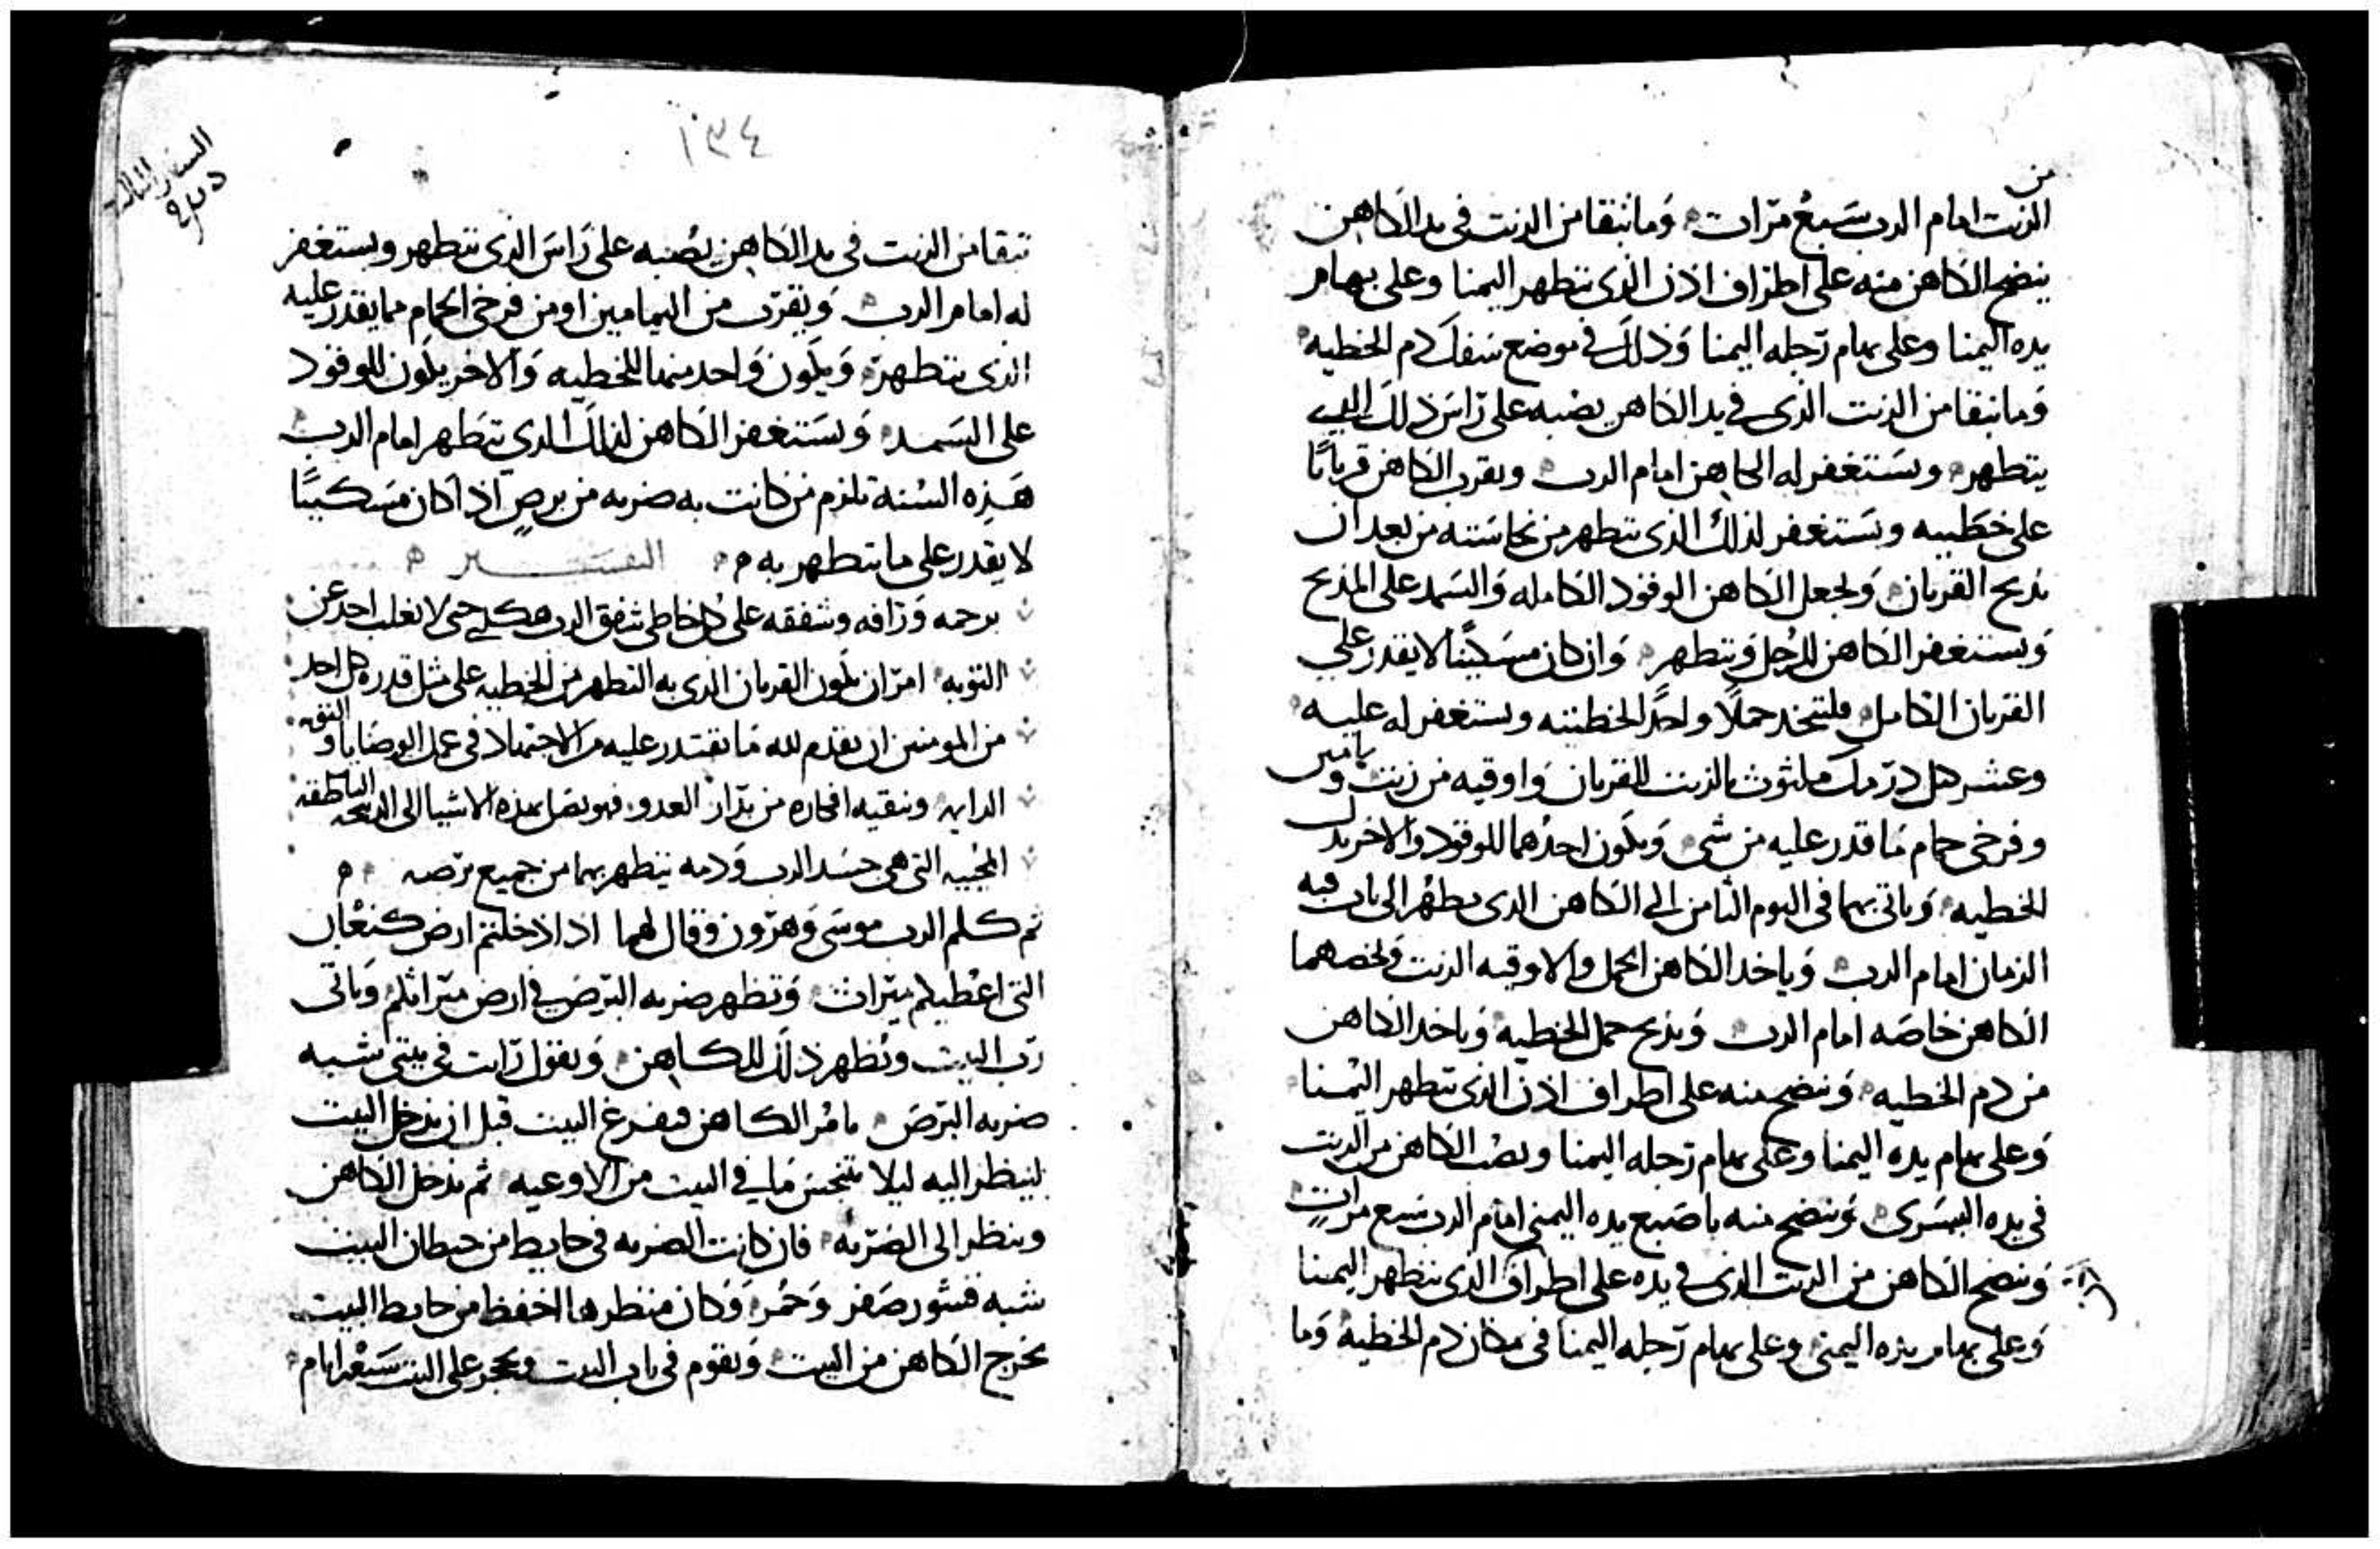 من
الزيت امام الرب سَبعُ مرّات وَما تبقا من الزيت فى يد الكاهن
ينضح الكاهن منه على اطراف اذن الذى يتطهر اليمنا وعلى بهام
يده اليمنا وعلى بهام رجله اليمنا وَذلك فى موضع سَفك دم الخطيه
وَما تبقا من الزيت الذى فى يد الكاهن يصبه على رَاسَ ذلك الذى
يتطهر ويسَتغفر له الكاهن امام الرب ويقرب الكاهن قربانًا
على خطيه ويسَتغفر لذلك الذى يتطهر من نجاسَته من بعد ان
يذبح القربان وَيجعل الكاهن الوقود الكامله وَالسَمد على المذبح
وَيستغفر الكاهن للرجل وَيتطهر وَان كان مسَكينًا لا يقدر على
القربان الكامل فليتخد حملًا واحدًا لخطيته ويستغفر له عليه
وعشر كيل درمك ملثوث بالزيت للقربان وَاوقيه من زيت ويمامين
وفرخى حمام مَا قدر عليه من شى وَيكون احدُهما للوقود والاخر بدل
الخطيه وَياتى بهما فى اليوم الثامن الى الكاهن الدى يطهر الى باب قبه
الزمان امام الرب وَياخد الكاهن الحمل والاوقيه الزيت وَيخصهما
الكاهن خاصَه امام الرب وَيذبح حمل الخطيه وَياخد الكاهن
من دم الخطيه وَينضح منه على اطراف اذن الذى يتطهر اليُمنا
وَعلى بهام يده اليمنا وعلى بهام رَجله اليمنا ويصُب الكاهن من الزيت
فى يده اليسَرى وَينضح منه باصَبع يده اليمنى امام الرب سَبع مراتٍ
وَينضح الكاهن من الزيت الذى فى يده على اطراف الذى يتطهر اليمنا
وَعلى بهام يده اليمنى وعلى بهام رَجله اليمنا فى مكان دم الخطيه وَما
١٣٤
السفر الثالث
تبقا من الزيت فى يد الكاهن يصُبه على رَاسَ الذى يتطهر ويستغفر
له امام الرب وَيقرّب من اليمامين او من فرخى الحمام مما يقدر عليه
الذى يتطهر وَيكون وَاحد منهما للخطيه وَالاخر يكون للوقود
على السَمد وَيسَتغفر الكاهن لذلك الذي يتطهر امام الرب
هَذِه السُنة تلزم من كانت به ضربه من برصٍ اذا كان مسَكينًا
لا يقدر على ما يتطهر به التفسَير
برحمه وَرَافه وشفقه على كل خاطى شفق الرب هكذى حتى لا يغلب احد عن
التوبه امرَ ان يكون القربان الذى به التطهر من الخطيه على مثل قدره كل احد
من المومنين ان يقدم لله مَا يقتدر عليه من الاجتهاد فى عمل الوصَايا و
الدايم وتنقيه افكاره من العدو فهو يصَل بهذه الاشيا الى الذبيحه الناطقه
المُحييه التى هى جسَد الرب وَدمه يتطهر بهما من جميع برَصه
ثم كلم الرب موسَى وَهرون وَقال لهما اذا دخلتم ارض كنعَان
التى اعْطيكم ميرَاث وَتظهر ضربه البرَص فى ارض ميرَاثكم وَياتى
رَب البيت ويُظهر ذلك للكاهن وَيقول رَايت فى بيتى شبه
ضربه البرَص يامُر الكاهن فيفرغ البيت قبل ان يدخل البيت
لينظر اليه ليلا يتنجسَ مَا فى البيت من الاوعيه ثم يدخل الكاهن
وينظر الى الضرَبه فان كانت الضربه فى حايط من حيطان البيت
شبه قشور صَفر وَحُمر وَكان منظرها اخفظ من حايط البيت
يخرج الكاهن من البيت وَيقوم فى باب البيت ويحجر على البيت سَبعْه ايام